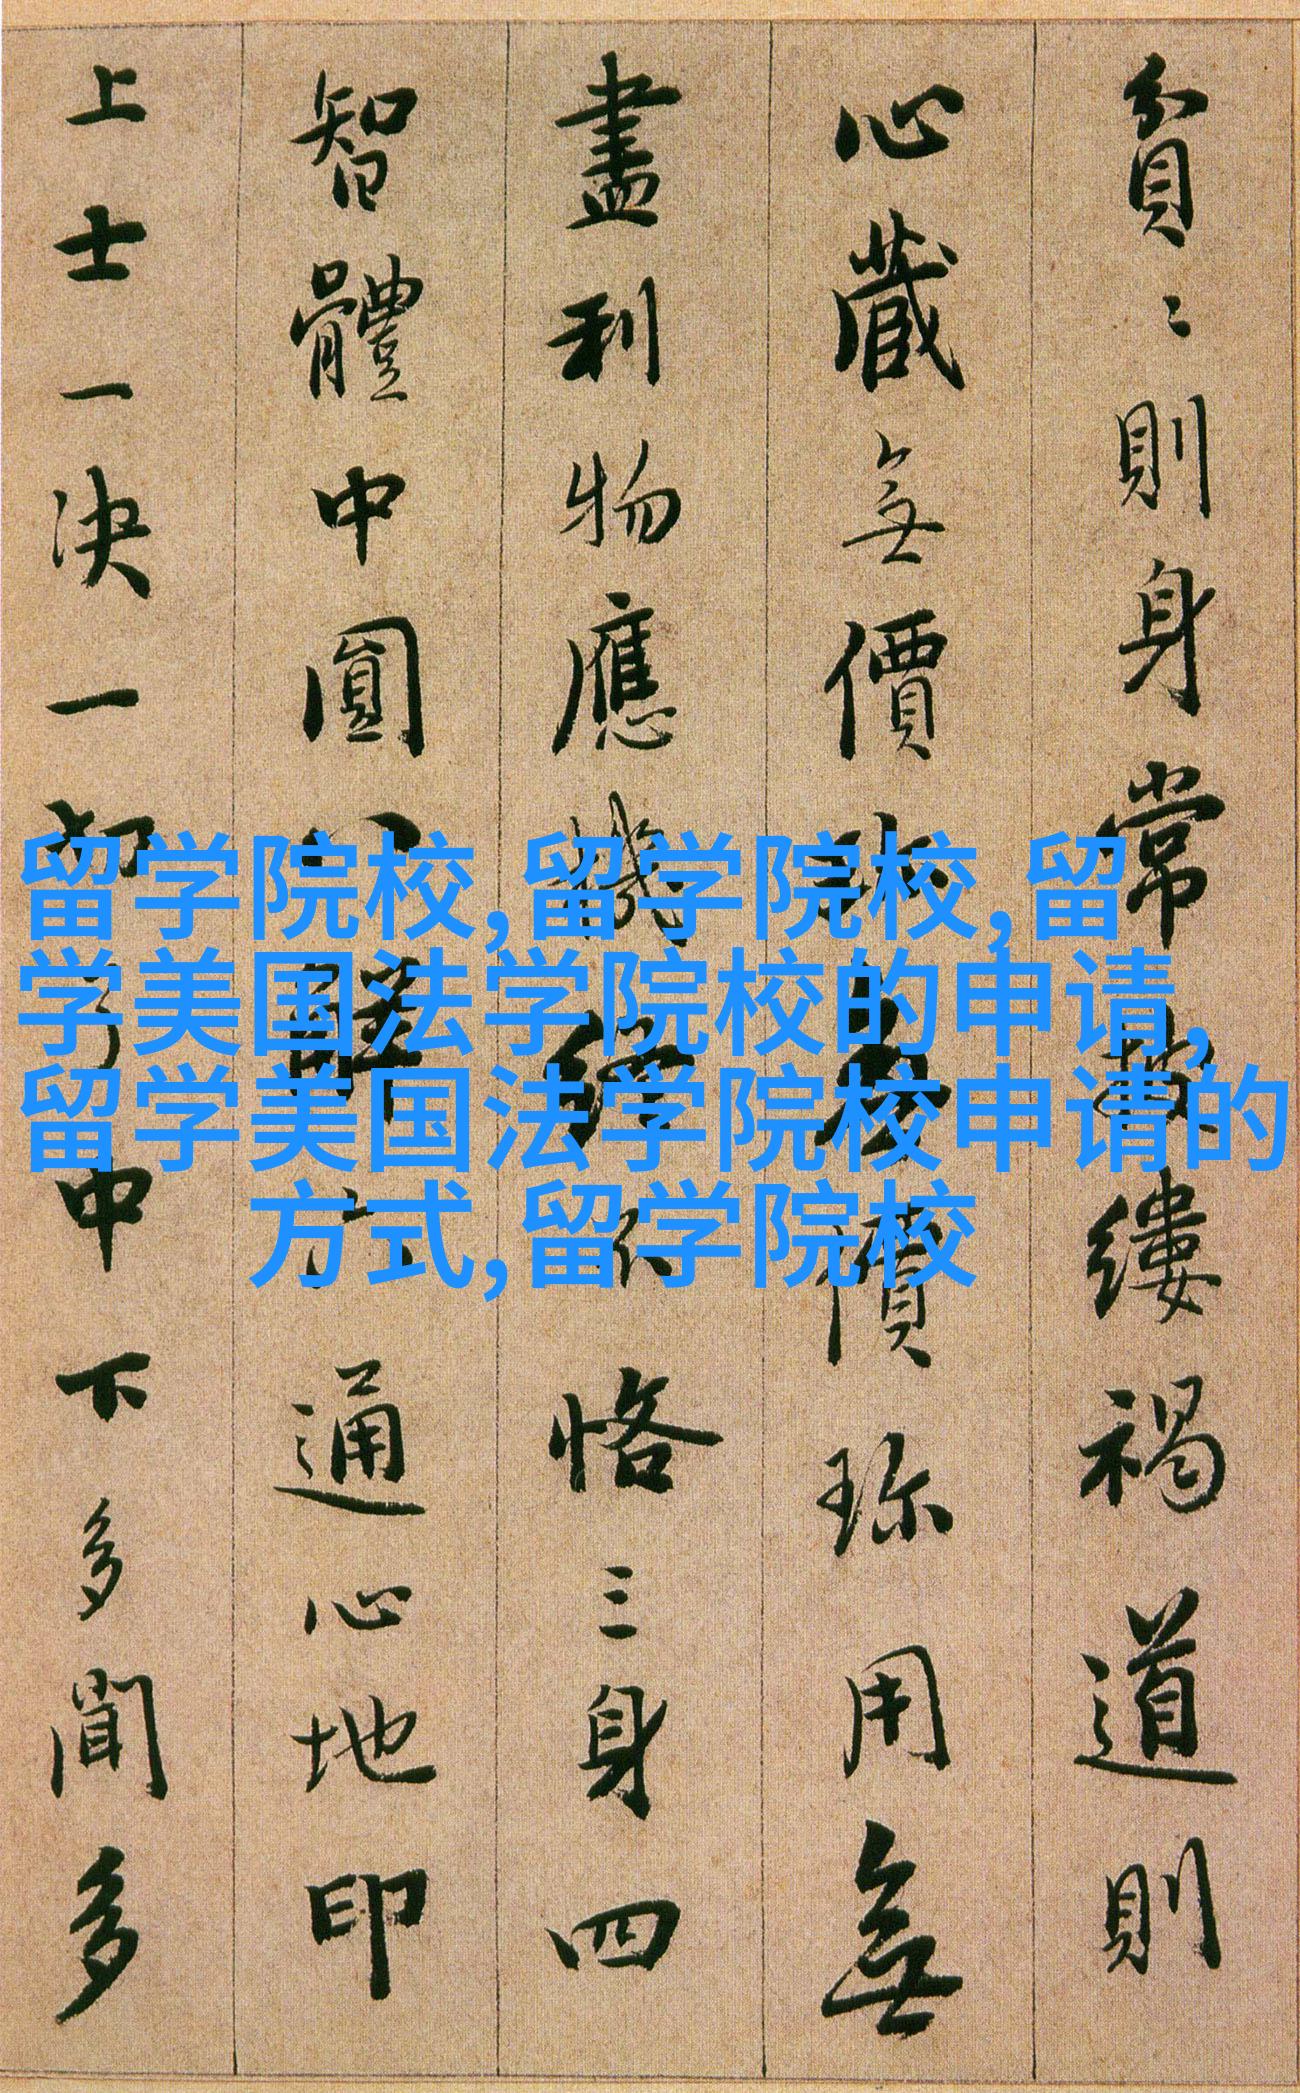 貧〻〻則身常披縷褐道則
心藏無價珎無價珎用無
盡利物應機終不恪三身四
智體中圓八解六通心地印
上士一决一切了中下多聞多
留学院校,留学院校,留
学美国法学院校的申请,
留学美国法学院校申请的
方式,留学院校